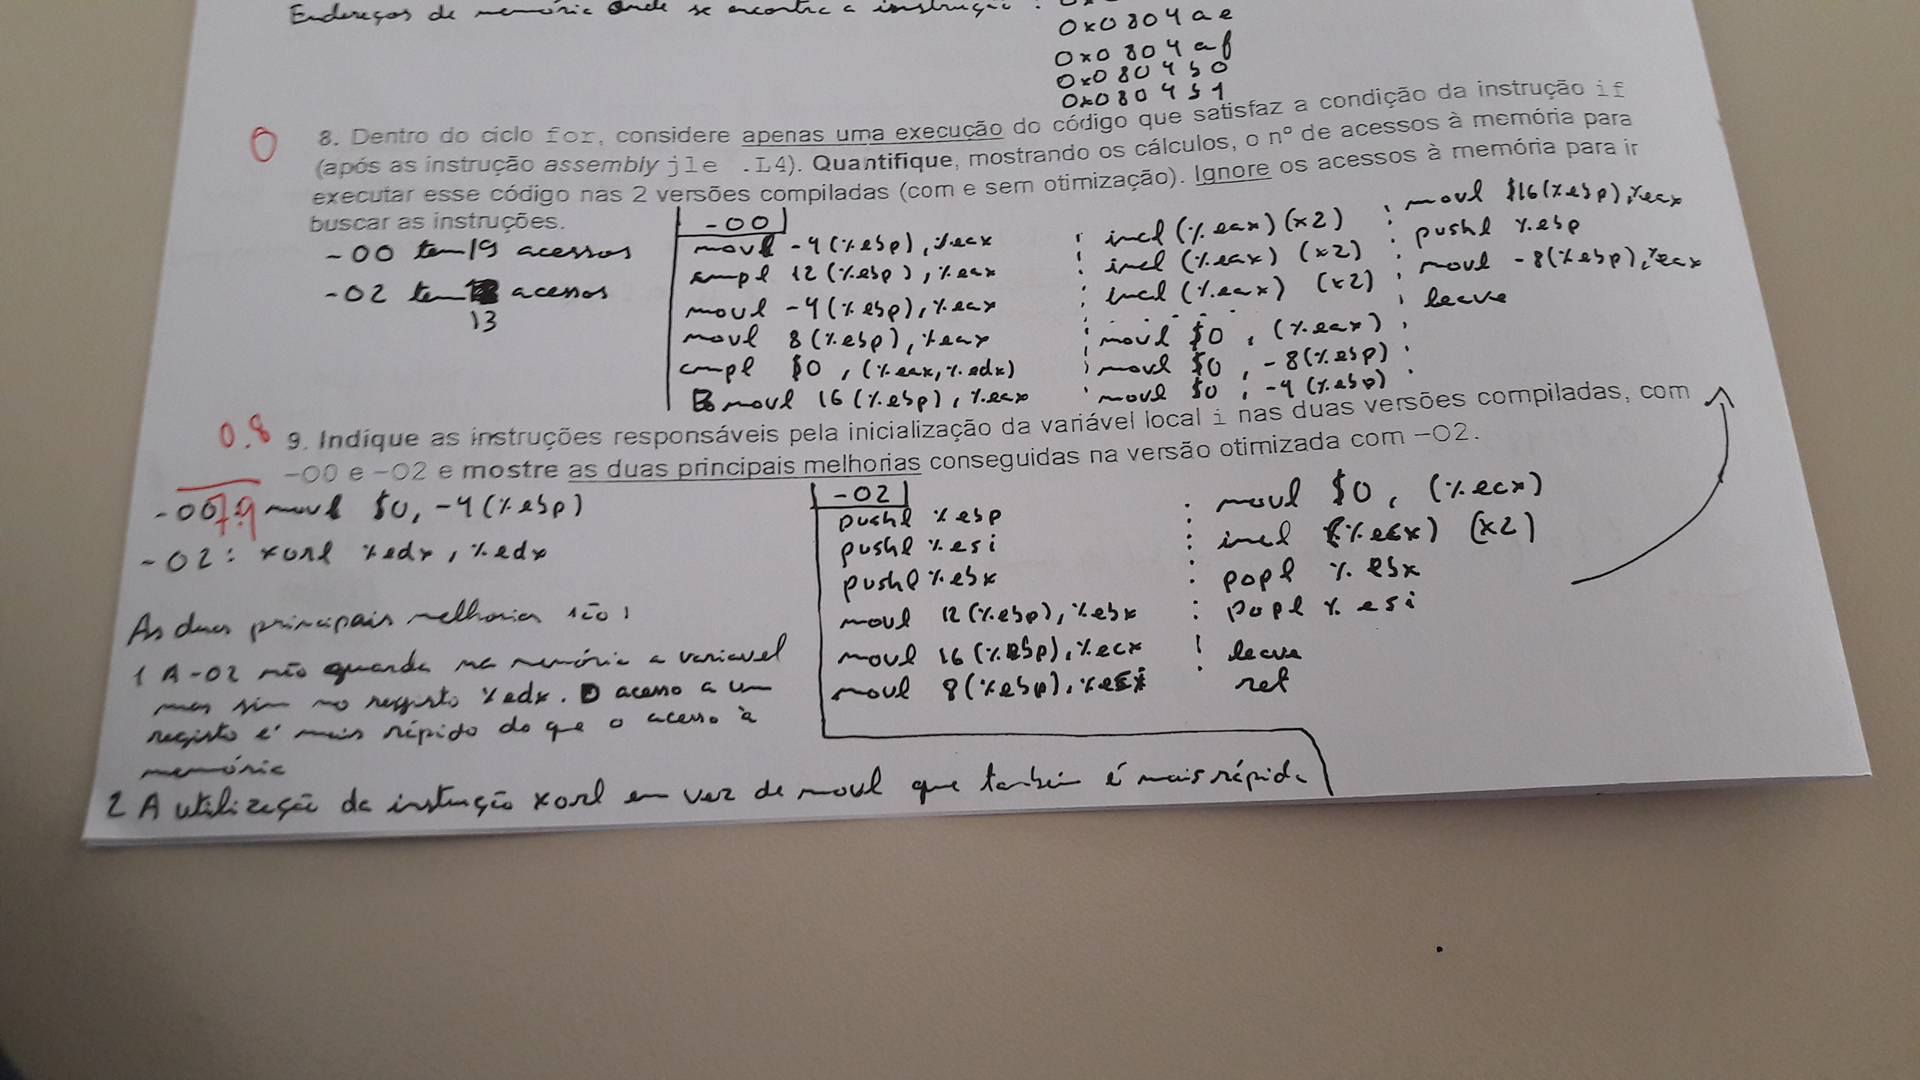 Endereços de memória onde se encontra a instrução :
0x0804ae
0x0804af
0x0804b0
0x0804b1
0 8. Dentro do ciclo for, considere apenas uma execução do código que satisfaz a condição da instrução if
(após as instrução assembly jle .L4). Quantifique, mostrando os cálculos, o nº de acessos à memória para
executar esse código nas 2 versões compiladas (com e sem otimização). Ignore os acessos à memória para ir
buscar as instruções.
-O0 tem 19 acessos
-O2 tem acessos
13
-O0
movl -4(%ebp), %eax
cmpl 12(%ebp), %eax
movl -4(%ebp), %eax
movl 8(%ebp), %eax
cmpl $0, (%eax, %edx)
movl 16(%ebp), %eax
incl (%eax) (x2)
incl (%eax) (x2)
incl (%eax) (x2)
movl $0, (%eax)
movl $0, -8(%ebp)
movl $0, -4(%ebp)
movl $16(%ebp), %eax
pushl %ebp
movl -8(%ebp), %eax
leave
0.8 9. Indique as instruções responsáveis pela inicialização da variável local i nas duas versões compiladas, com
-O0 e -O2 e mostre as duas principais melhorias conseguidas na versão otimizada com -O2.
7.9
-O0: movl $0, -4(%ebp)
-O2: xorl %edx, %edx
As duas principais melhorias são:
1 A -O2 não guarda na memória a variavel
mas sim no registo %edx. O acesso a um
registo é mais rápido do que o acesso à
memória
2 A utilização da instrução xorl em vez de movl que também é mais rápida
-O2
pushl %ebp
pushl %esi
pushl %ebx
movl 12(%ebp), %ebx
movl 16(%ebp), %ecx
movl 8(%ebp), %esi
movl $0, (%ecx)
incl (%ecx) (x2)
popl %ebx
popl %esi
leave
ret